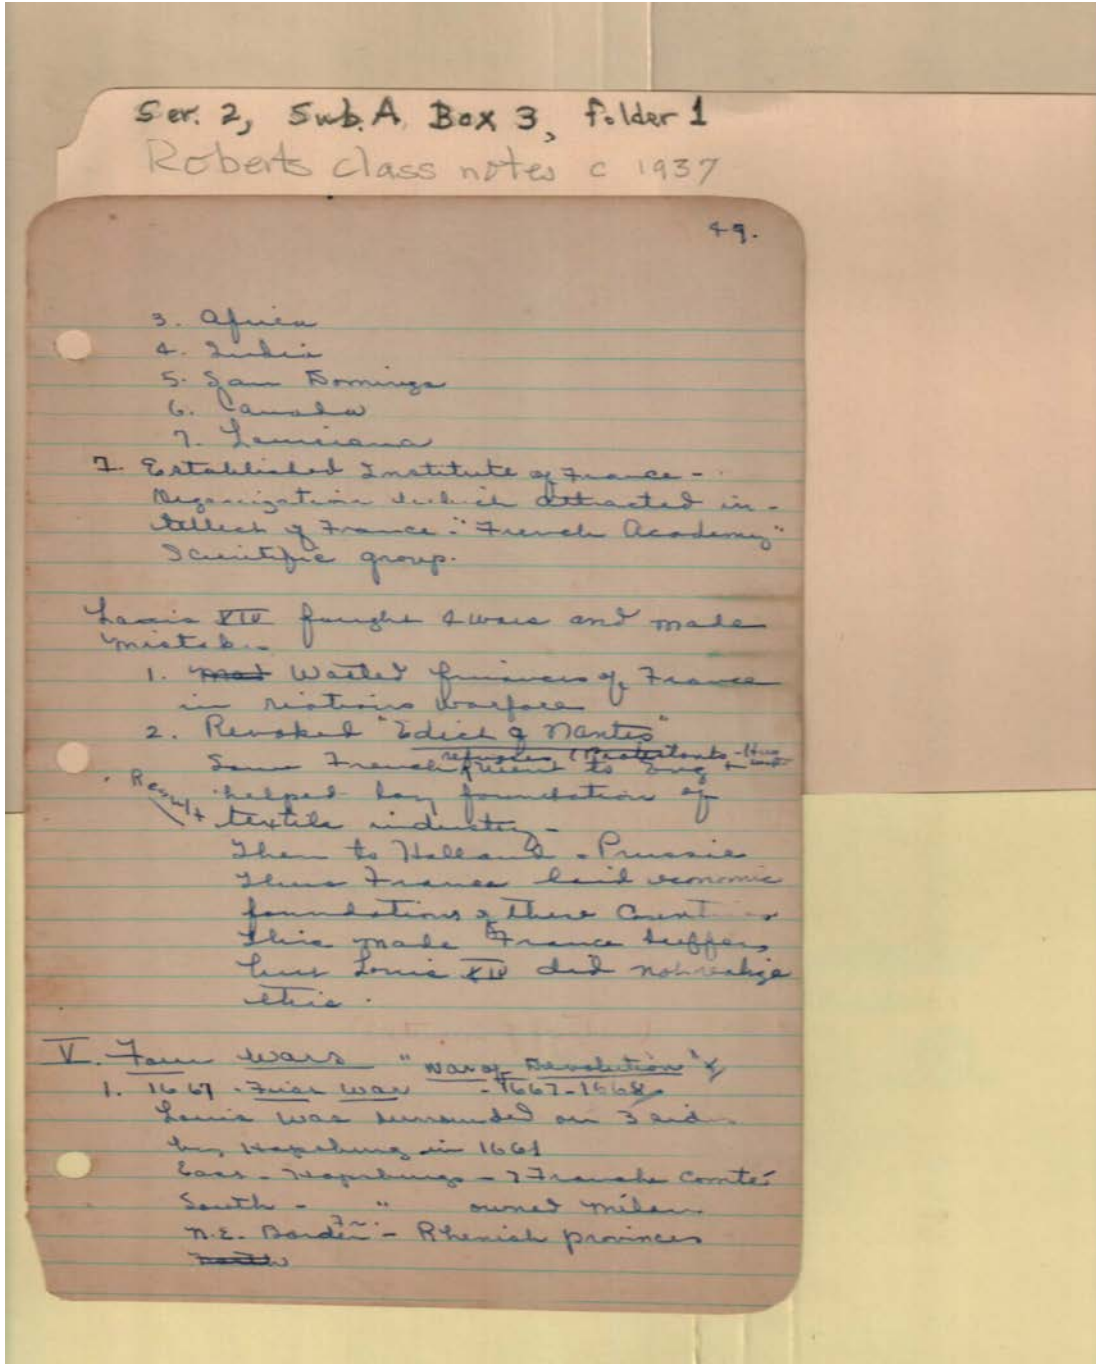 Ser. 2, Sub. A, Box 3, folder 1
Roberts class notes c 1937
49.
3. Africa
4. India
5. San Domingo
6. Canada
7. Louisiana
7. Established Institute of France -
Organization which attracted in-
tellect of France. "French Academy"
Scientific group.
Louis XIV fought 4 wars and made
mistakes
1. Wasted finances of France
in warfare
2. Revoked "Edict of Nantes"
Some French refugees (Protestants -
went to Eng
Result
helped lay foundation of
textile industry -
Then to Holland - Prussia
Thus France laid economic
foundations of these countries
This made France suffer,
but Louis XIV did not realize
this.
V. Four Wars "War of Devolution"
1. 1667 - First War - 1667-1668
Louis was surrounded on 3 sides
by Hapsburg in 1661
East - Hapsburgs - Franche Comté
South - " owned Milan
N.E. Border Fr. - Rhenish provinces
North